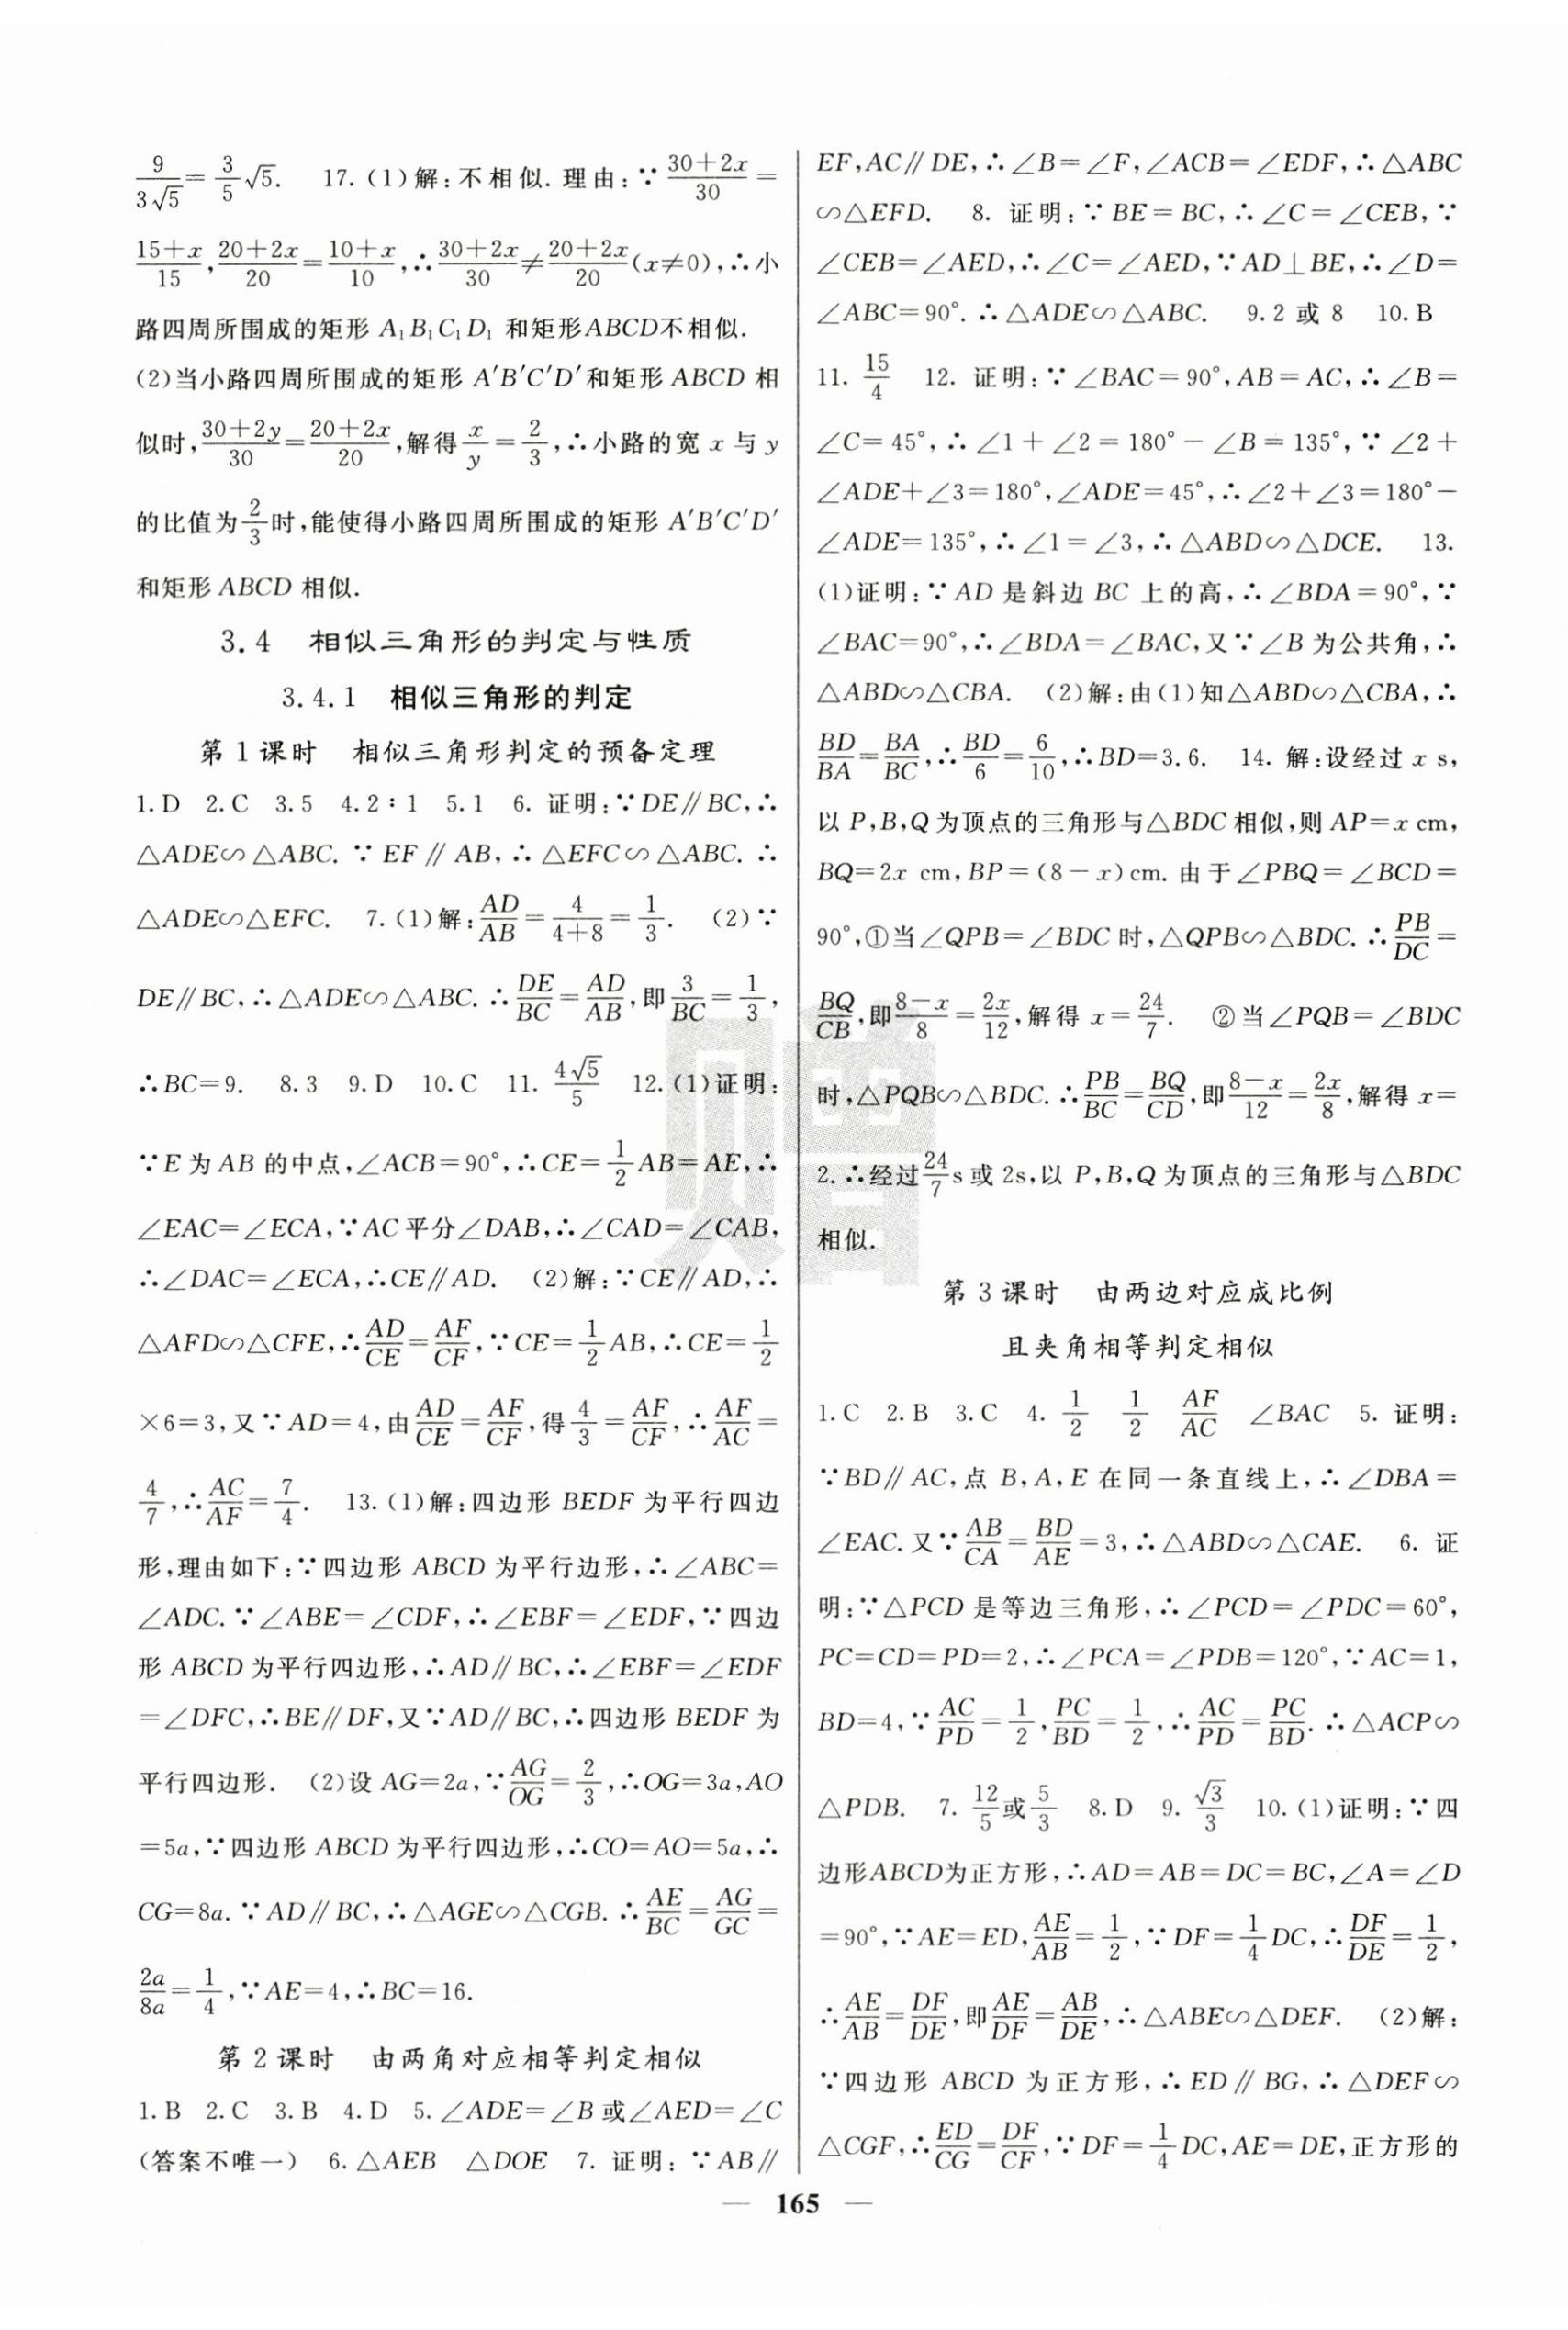 9/(3√5)=(3/5)√5. 17.(1)解:不相似.理由:∵(30+2x)/30=
(15+x)/15,(20+2x)/20=(10+x)/10,∴(30+2x)/30≠(20+2x)/20(x≠0),∴小
路四周所围成的矩形 A₁B₁C₁D₁ 和矩形ABCD不相似.
(2)当小路四周所围成的矩形 A′B′C′D′和矩形 ABCD 相
似时,(30+2y)/30=(20+2x)/20,解得 x/y=2/3,∴小路的宽 x 与 y
的比值为2/3时,能使得小路四周所围成的矩形 A′B′C′D′
和矩形 ABCD 相似.
3.4 相似三角形的判定与性质
3.4.1 相似三角形的判定
第 1 课时 相似三角形判定的预备定理
1.D 2.C 3.5 4.2∶1 5.1 6. 证明:∵DE∥BC,∴
△ADE∽△ABC. ∵EF∥AB,∴△EFC∽△ABC. ∴
△ADE∽△EFC. 7.(1)解:AD/AB=4/(4+8)=1/3. (2)∵
DE∥BC,∴△ADE∽△ABC. ∴DE/BC=AD/AB,即3/BC=1/3,
∴BC=9. 8.3 9.D 10.C 11. 4√5/5 12.(1)证明:
∵E 为 AB 的中点,∠ACB=90°,∴CE=1/2AB=AE,∴
∠EAC=∠ECA,∵AC平分∠DAB,∴∠CAD=∠CAB,
∴∠DAC=∠ECA,∴CE∥AD. (2)解:∵CE∥AD,∴
△AFD∽△CFE,∴AD/CE=AF/CF,∵CE=1/2AB,∴CE=1/2
×6=3,又∵AD=4,由AD/CE=AF/CF,得4/3=AF/CF,∴AF/AC=
4/7,∴AC/AF=7/4. 13.(1)解:四边形 BEDF 为平行四边
形,理由如下:∵四边形 ABCD 为平行边形,∴∠ABC=
∠ADC.∵∠ABE=∠CDF,∴∠EBF=∠EDF,∵四边
形 ABCD 为平行四边形,∴AD∥BC,∴∠EBF=∠EDF
=∠DFC,∴BE∥DF,又∵AD∥BC,∴四边形 BEDF 为
平行四边形. (2)设 AG=2a,∵AG/OG=2/3,∴OG=3a,AO
=5a,∵四边形 ABCD 为平行四边形,∴CO=AO=5a,∴
CG=8a.∵AD∥BC,∴△AGE∽△CGB. ∴AE/BC=AG/GC=
2a/8a=1/4,∵AE=4,∴BC=16.
第 2 课时 由两角对应相等判定相似
1.B 2.C 3.B 4.D 5.∠ADE=∠B 或∠AED=∠C
(答案不唯一) 6.△AEB △DOE 7. 证明:∵AB∥
EF,AC∥DE,∴∠B=∠F,∠ACB=∠EDF,∴△ABC
∽△EFD. 8. 证明:∵BE=BC,∴∠C=∠CEB,∵
∠CEB=∠AED,∴∠C=∠AED,∵AD⊥BE,∴∠D=
∠ABC=90°.∴△ADE∽△ABC. 9.2 或 8 10.B
11. 15/4 12. 证明:∵∠BAC=90°,AB=AC,∴∠B=
∠C=45°,∴∠1+∠2=180°-∠B=135°,∵∠2+
∠ADE+∠3=180°,∠ADE=45°,∴∠2+∠3=180°-
∠ADE=135°,∴∠1=∠3,∴△ABD∽△DCE. 13.
(1)证明:∵AD 是斜边 BC 上的高,∴∠BDA=90°,∵
∠BAC=90°,∴∠BDA=∠BAC,又∵∠B 为公共角,∴
△ABD∽△CBA. (2)解:由(1)知△ABD∽△CBA,∴
BD/BA=BA/BC,∴BD/6=6/10,∴BD=3.6. 14. 解:设经过 x s,
以 P,B,Q 为顶点的三角形与△BDC 相似,则 AP=x cm,
BQ=2x cm,BP=(8-x)cm.由于∠PBQ=∠BCD=
90°,①当∠QPB=∠BDC 时,△QPB∽△BDC.∴PB/DC=
BQ/CB,即(8-x)/8=2x/12,解得 x=24/7. ②当∠PQB=∠BDC
时,△PQB∽△BDC.∴PB/BC=BQ/CD,即(8-x)/12=2x/8,解得 x=
2.∴经过24/7s或 2s,以 P,B,Q 为顶点的三角形与△BDC
相似.
第 3 课时 由两边对应成比例
且夹角相等判定相似
1.C 2.B 3.C 4. 1/2 1/2 AF/AC ∠BAC 5. 证明:
∵BD∥AC,点 B,A,E 在同一条直线上,∴∠DBA=
∠EAC.又∵AB/CA=BD/AE=3,∴△ABD∽△CAE. 6. 证
明:∵△PCD 是等边三角形,∴∠PCD=∠PDC=60°,
PC=CD=PD=2,∴∠PCA=∠PDB=120°,∵AC=1,
BD=4,∵AC/PD=1/2,PC/BD=1/2,∴AC/PD=PC/BD.∴△ACP∽
△PDB. 7. 12/5或5/3 8.D 9. √3/3 10.(1)证明:∵四
边形ABCD为正方形,∴AD=AB=DC=BC,∠A=∠D
=90°,∵AE=ED,AE/AB=1/2,∵DF=1/4DC,∴DF/DE=1/2,
∴AE/AB=DF/DE,即AE/DF=AB/DE,∴△ABE∽△DEF. (2)解:
∵四边形 ABCD 为正方形,∴ED∥BG,∴△DEF∽
△CGF,∴ED/CG=DF/CF,∵DF=1/4DC,AE=DE,正方形的
— 165 —
赠